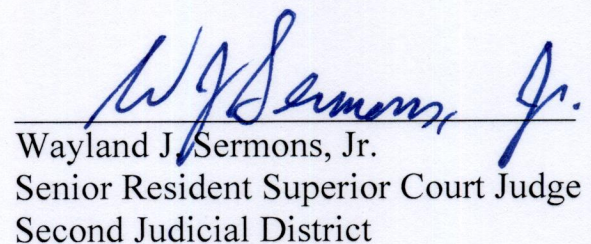 W J Sermons, Jr.
Wayland J. Sermons, Jr.
Senior Resident Superior Court Judge
Second Judicial District